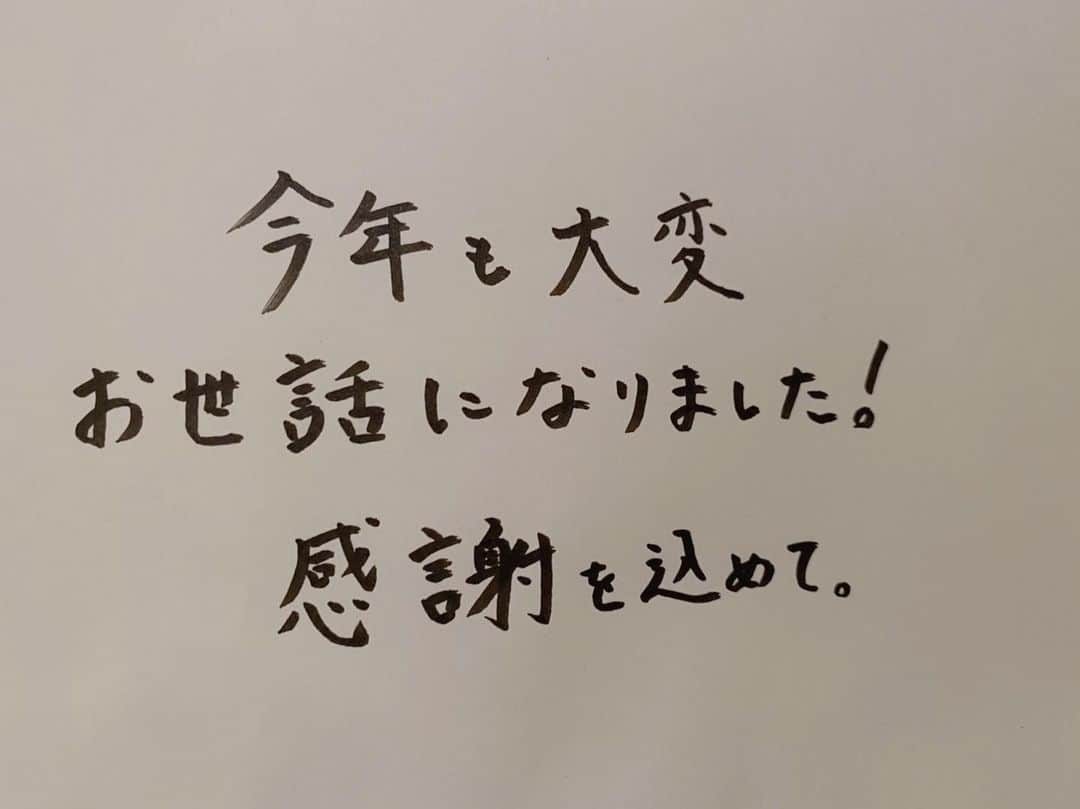 今年も大変
お世話になりました!
感謝を込めて。